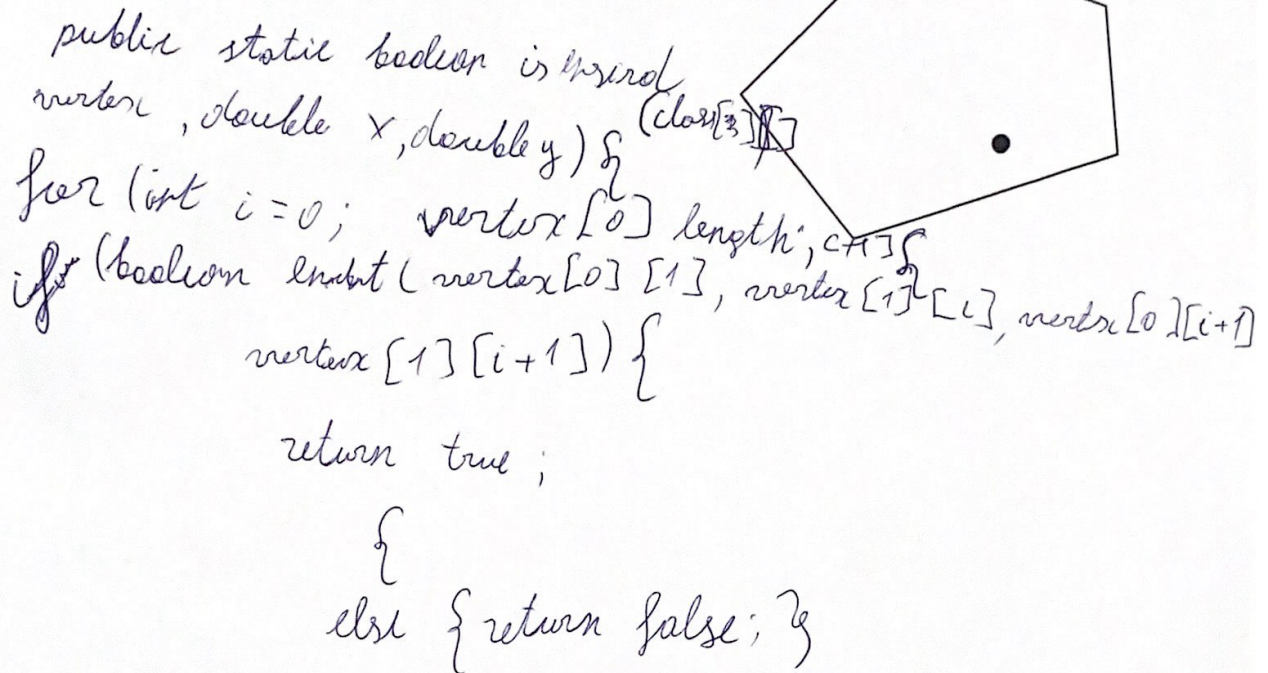 public static boolean is
vertex, double x, double y) {
for (int i = 0; vertex [0] length;
if (boolean ( vertex [0] [1], vertex [1] [i], vertex [0] [i+1]
vertex [1] [i+1]) {
return true ;
{
else { return false; }